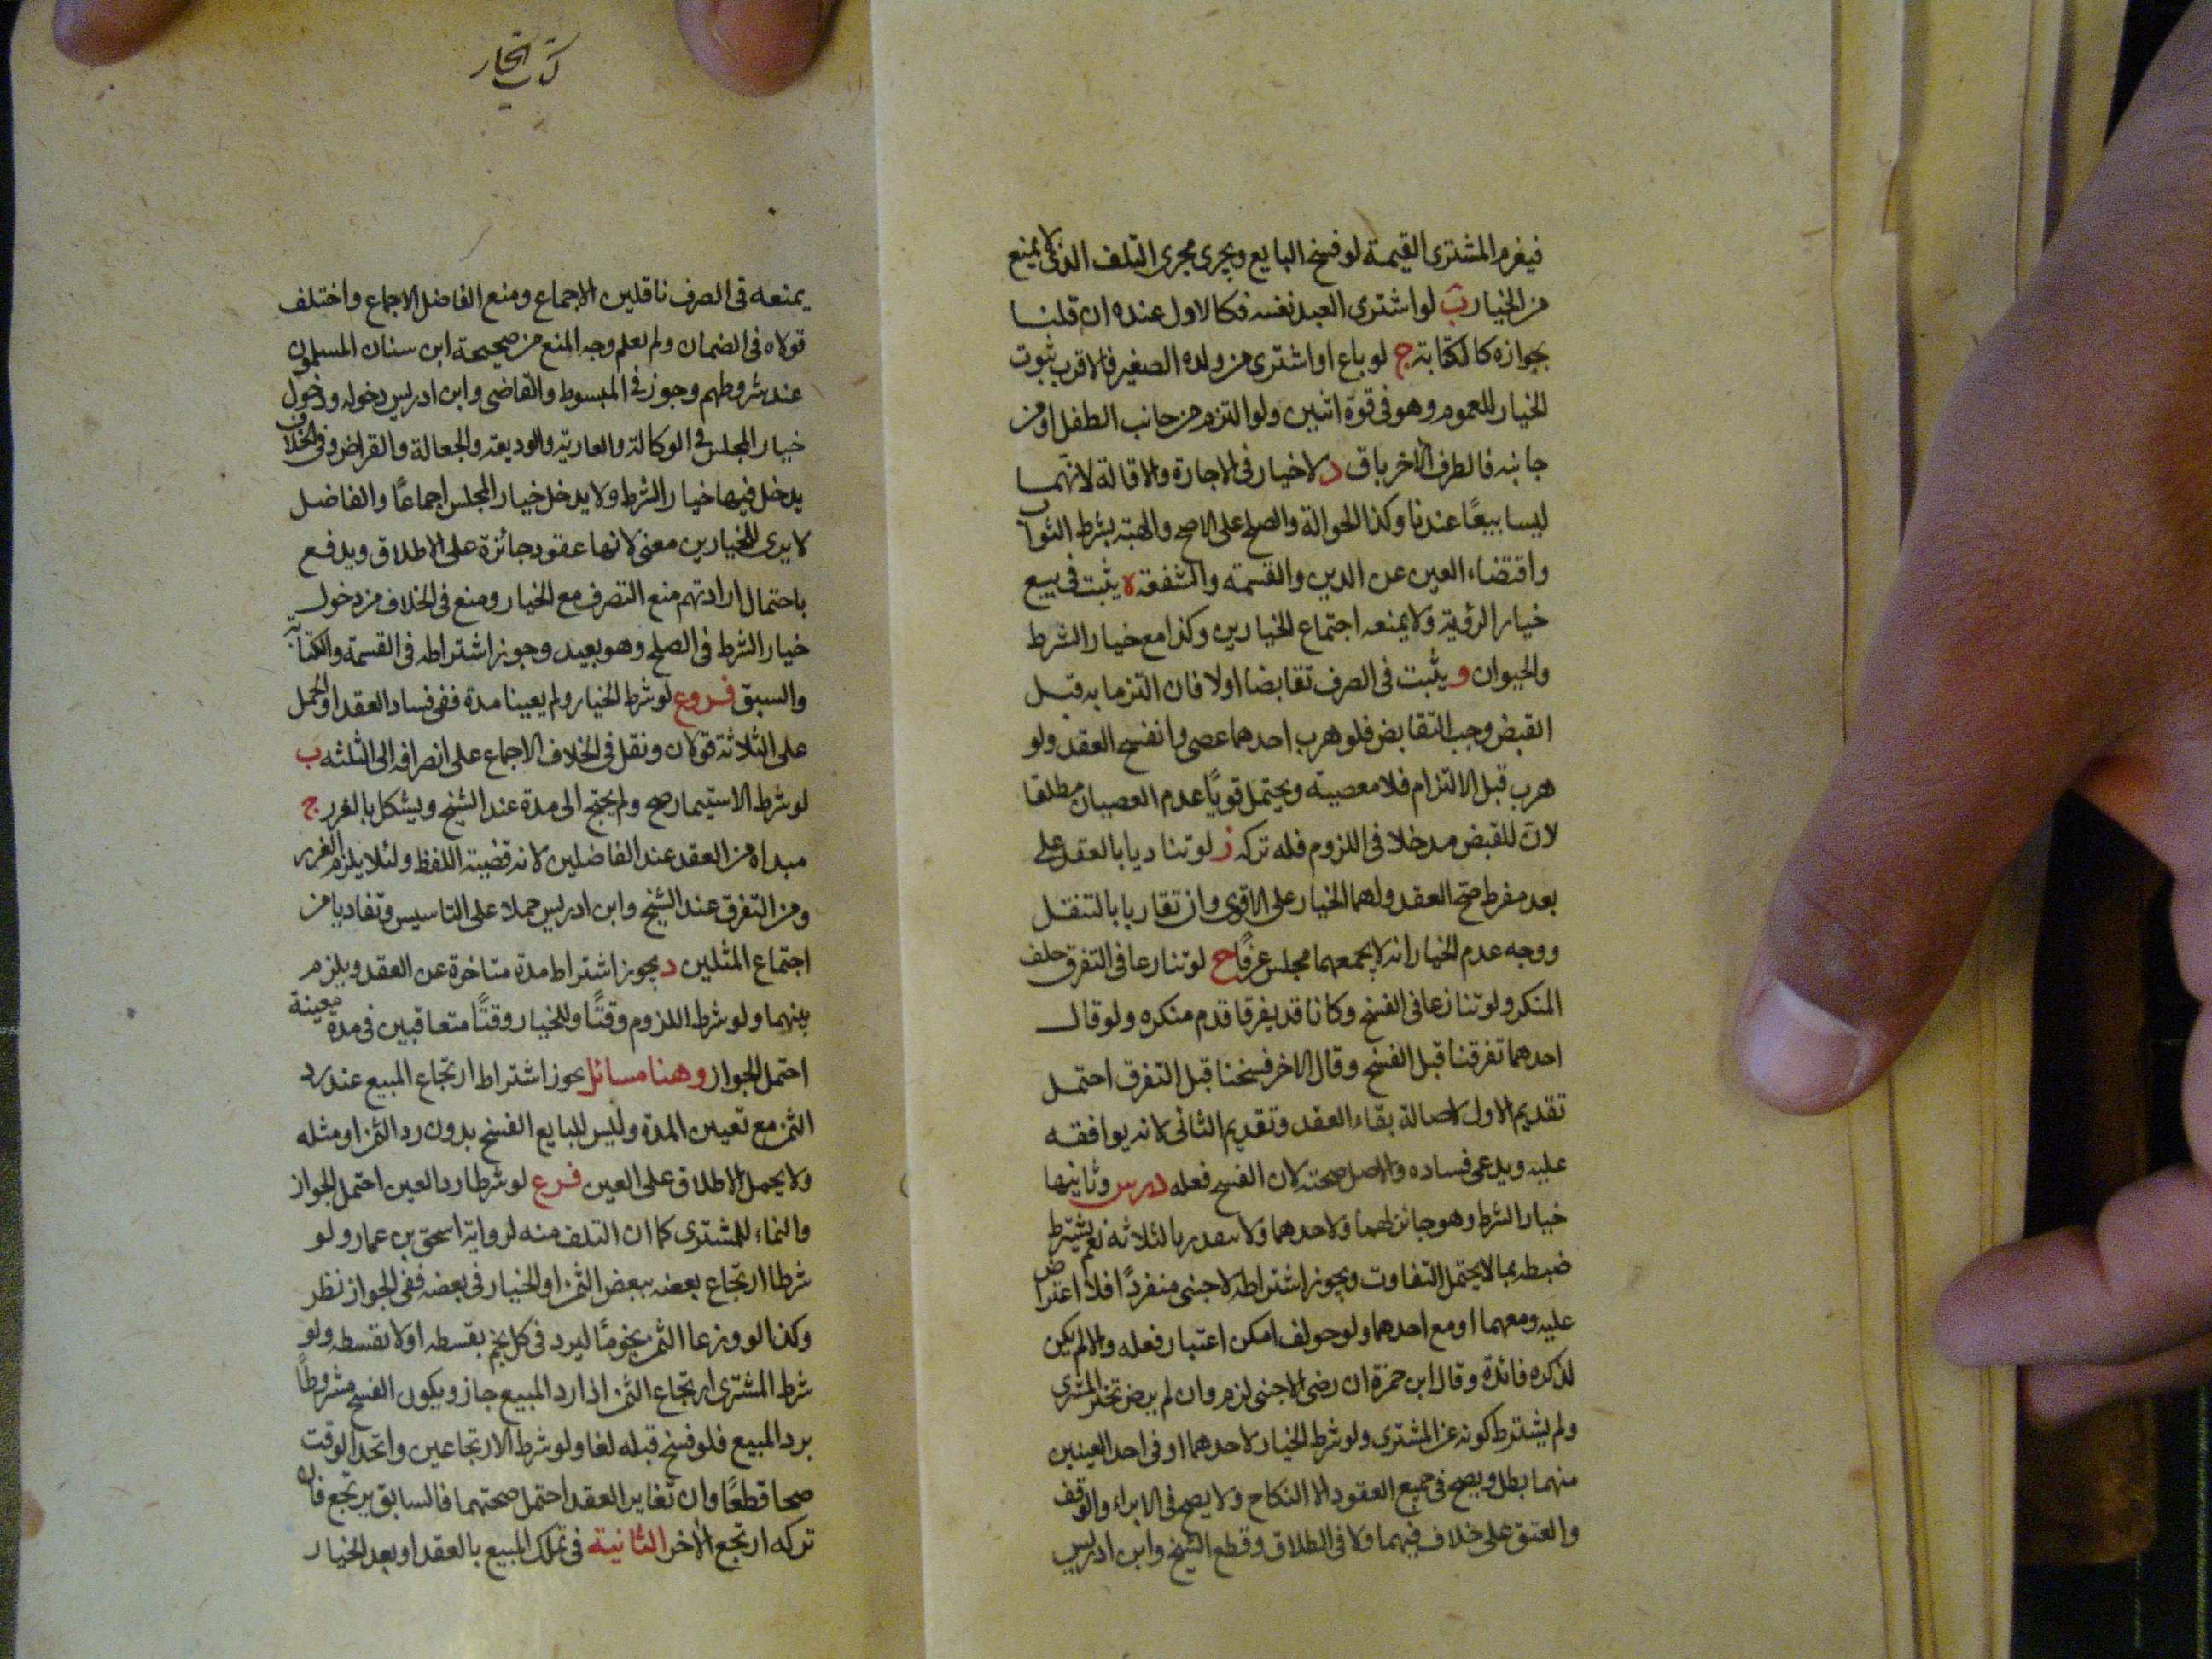 فيغرم المشتري القيمة لو فسخ البايع ويجرى مجرى التلف الذى لا يمنع
من الخيار ب لو اشترى العبد نفسه فكالاول عنده ان قلنا
بجوازه كالكتابة ج لو باع او اشترى من ولده الصغير فالاقرب ثبوت
الخيار للعموم وهو فى قوة اثنين ولو التزم من جانب الطفل او من
جانبه فالطرف الاخر باق د لا خيار فى الاجارة والاقالة لانهما
ليسا بيعًا عندنا وكذا الحوالة والصلح على الاصح والهبة بشرط الثواب
واقتضاء العين عن الدين والقسمة والشفعة ه يثبت فى بيع
خيار الرؤية ولا يمنعه اجتماع الخيارين وكذا مع خيار الشرط
والحيوان و يثبت فى الصرف تقابضا اولا فان التزما به قبل
القبض وجب التقابض فلو هرب احدهما عصى وانفسخ العقد ولو
هرب قبل الالتزام فلا معصية ويحتمل قويًا عدم العصيان مطلقا
لان للقبض مدخلا فى اللزوم فله تركه ز لو تناديا بالعقد على
بعد مفرط صح العقد ولهما الخيار على الاقوى وان تقاربا بالتنقل
ووجه عدم الخيار انه لا يجمعهما مجلس عرفًا ح لو تنازعا فى التفرق حلف
المنكر ولو تنازعا فى الفسخ وكانا قد يفرقا قدم منكره ولو قال
احدهما تفرقنا قبل الفسخ وقال الاخر فسخنا قبل التفرق احتمل
تقديم الاول لاصالة بقاء العقد وتقديم الثانى لانه يوافقه
عليه ويدعى فساده والاصل صحته لان الفسخ فعله درس وثانيها
خيار الشرط وهو جائز لهما ولاحدهما ولا يتقدر بالثلاثة نعم يشترط
ضبطه بما لا يحتمل التفاوت ويجوز اشتراطه لاجنبى منفردًا فلا اعتراض
عليه ومعهما او مع احدهما ولو خولف امكن اعتبار فعله والا لم يكن
لذكره فائدة وقال ابن حمزة ان رضى الاجنبى لزم وان لم يرض تخير المشترى
ولم يشترط كونه عن المشترى ولو شرط الخيار لاحدهما او فى احد العينين
منهما بطل ويصح فى جميع العقود الا النكاح ولا يصح فى الابراء والوقف
والعتق على خلاف فيهما ولا فى الطلاق وقطع الشيخ وابن ادريس
كتاب الخيار
يمنعه فى الصرف ناقلين الاجماع ومنع الفاضل الاجماع واختلف
قولاه فى الضمان ولم يعلم وجه المنع من صحيحة ابن سنان المسلمون
عند شروطهم وجوز فى المبسوط والقاضى وابن ادريس دخوله ودخول
خيار المجلس فى الوكالة والعارية والوديعة والجعالة والقراض وفى الخلاف
يدخل فيها خيار الشرط ولا يدخل خيار المجلس اجماعًا والفاضل
لا يرى للخيارين معنى لانها عقود جائزة على الاطلاق ويدفع
باحتمال ارادتهم منع التصرف مع الخيار ومنع فى الخلاف من دخول
خيار الشرط فى الصلح وهو بعيد وجوز اشتراطه فى القسمة والكتابة
والسبق فروع لو شرط الخيار ولم يعينا مدة ففى فساد العقد او الحمل
على الثلاثة قولان ونقل فى الخلاف الاجماع على انصرافه الى الثلثه ب
لو شرط الاستيمار صح ولم يحتج الى مدة عند الشيخ ويشكل بالغرر ج
مبداه من العقد عند الفاضلين لانه قضية اللفظ ولئلا يلزم الغرر
ومن التفرق عند الشيخ وابن ادريس حملا على التاسيس وتفاديا من
اجتماع المثلين د يجوز اشتراط مدة متاخرة عن العقد ويلزم
بينهما ولو شرط اللزوم وقتًا والخيار وقتًا متعاقبين فى مدة معينة
احتمل الجواز وهنا مسائل يجوز اشتراط ارتجاع المبيع عند رد
الثمن مع تعيين المدة وليس للبايع الفسخ بدون رد الثمن او مثله
ولا يحمل الاطلاق على العين فرع لو شرطا رد العين احتمل الجواز
والنماء للمشترى كما ان التلف منه لرواية اسحق بن عمار ولو
شرطا ارتجاع بعضه ببعض الثمن او الخيار فى بعضه ففى الجواز نظر
وكذا لو وزعا الثمن نجومًا ليرد فى كل نجم بقسطه او لا بقسطه ولو
شرط المشترى ارتجاع الثمن اذا رد المبيع جاز ويكون الفسخ مشروطًا
برد المبيع فلو فسخ قبله لغا ولو شرط الارتجاعين واتحد الوقت
صحا قطعًا وان تغاير العقد احتمل صحتهما فالسابق يرتجع فان
تركه ارتجع الاخر الثانية فى تملك المبيع بالعقد او بعد الخيار